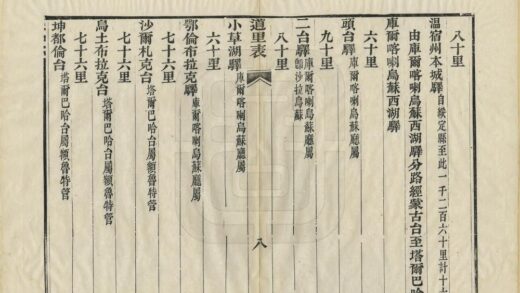 八十里
溫宿州本城驛自綏定縣至此一千二百六十里計十
由庫爾喀喇烏蘇西湖驛分路經蒙古台至塔爾巴哈
庫爾喀喇烏蘇西湖驛
六十里
頭台驛庫爾喀喇烏蘇廳屬
九十里
二台驛庫爾喀喇烏蘇廳屬卽沙拉烏蘇
八十里
道里表
八
小草湖驛庫爾喀喇烏蘇廳屬
六十里
鄂倫布拉克驛庫爾喀喇烏蘇廳屬
七十六里
沙爾札克台塔爾巴哈台屬額魯特管
七十六里
烏土布拉克台塔爾巴哈台屬額魯特管
七十六里
坤都倫台塔爾巴哈台屬額魯特管